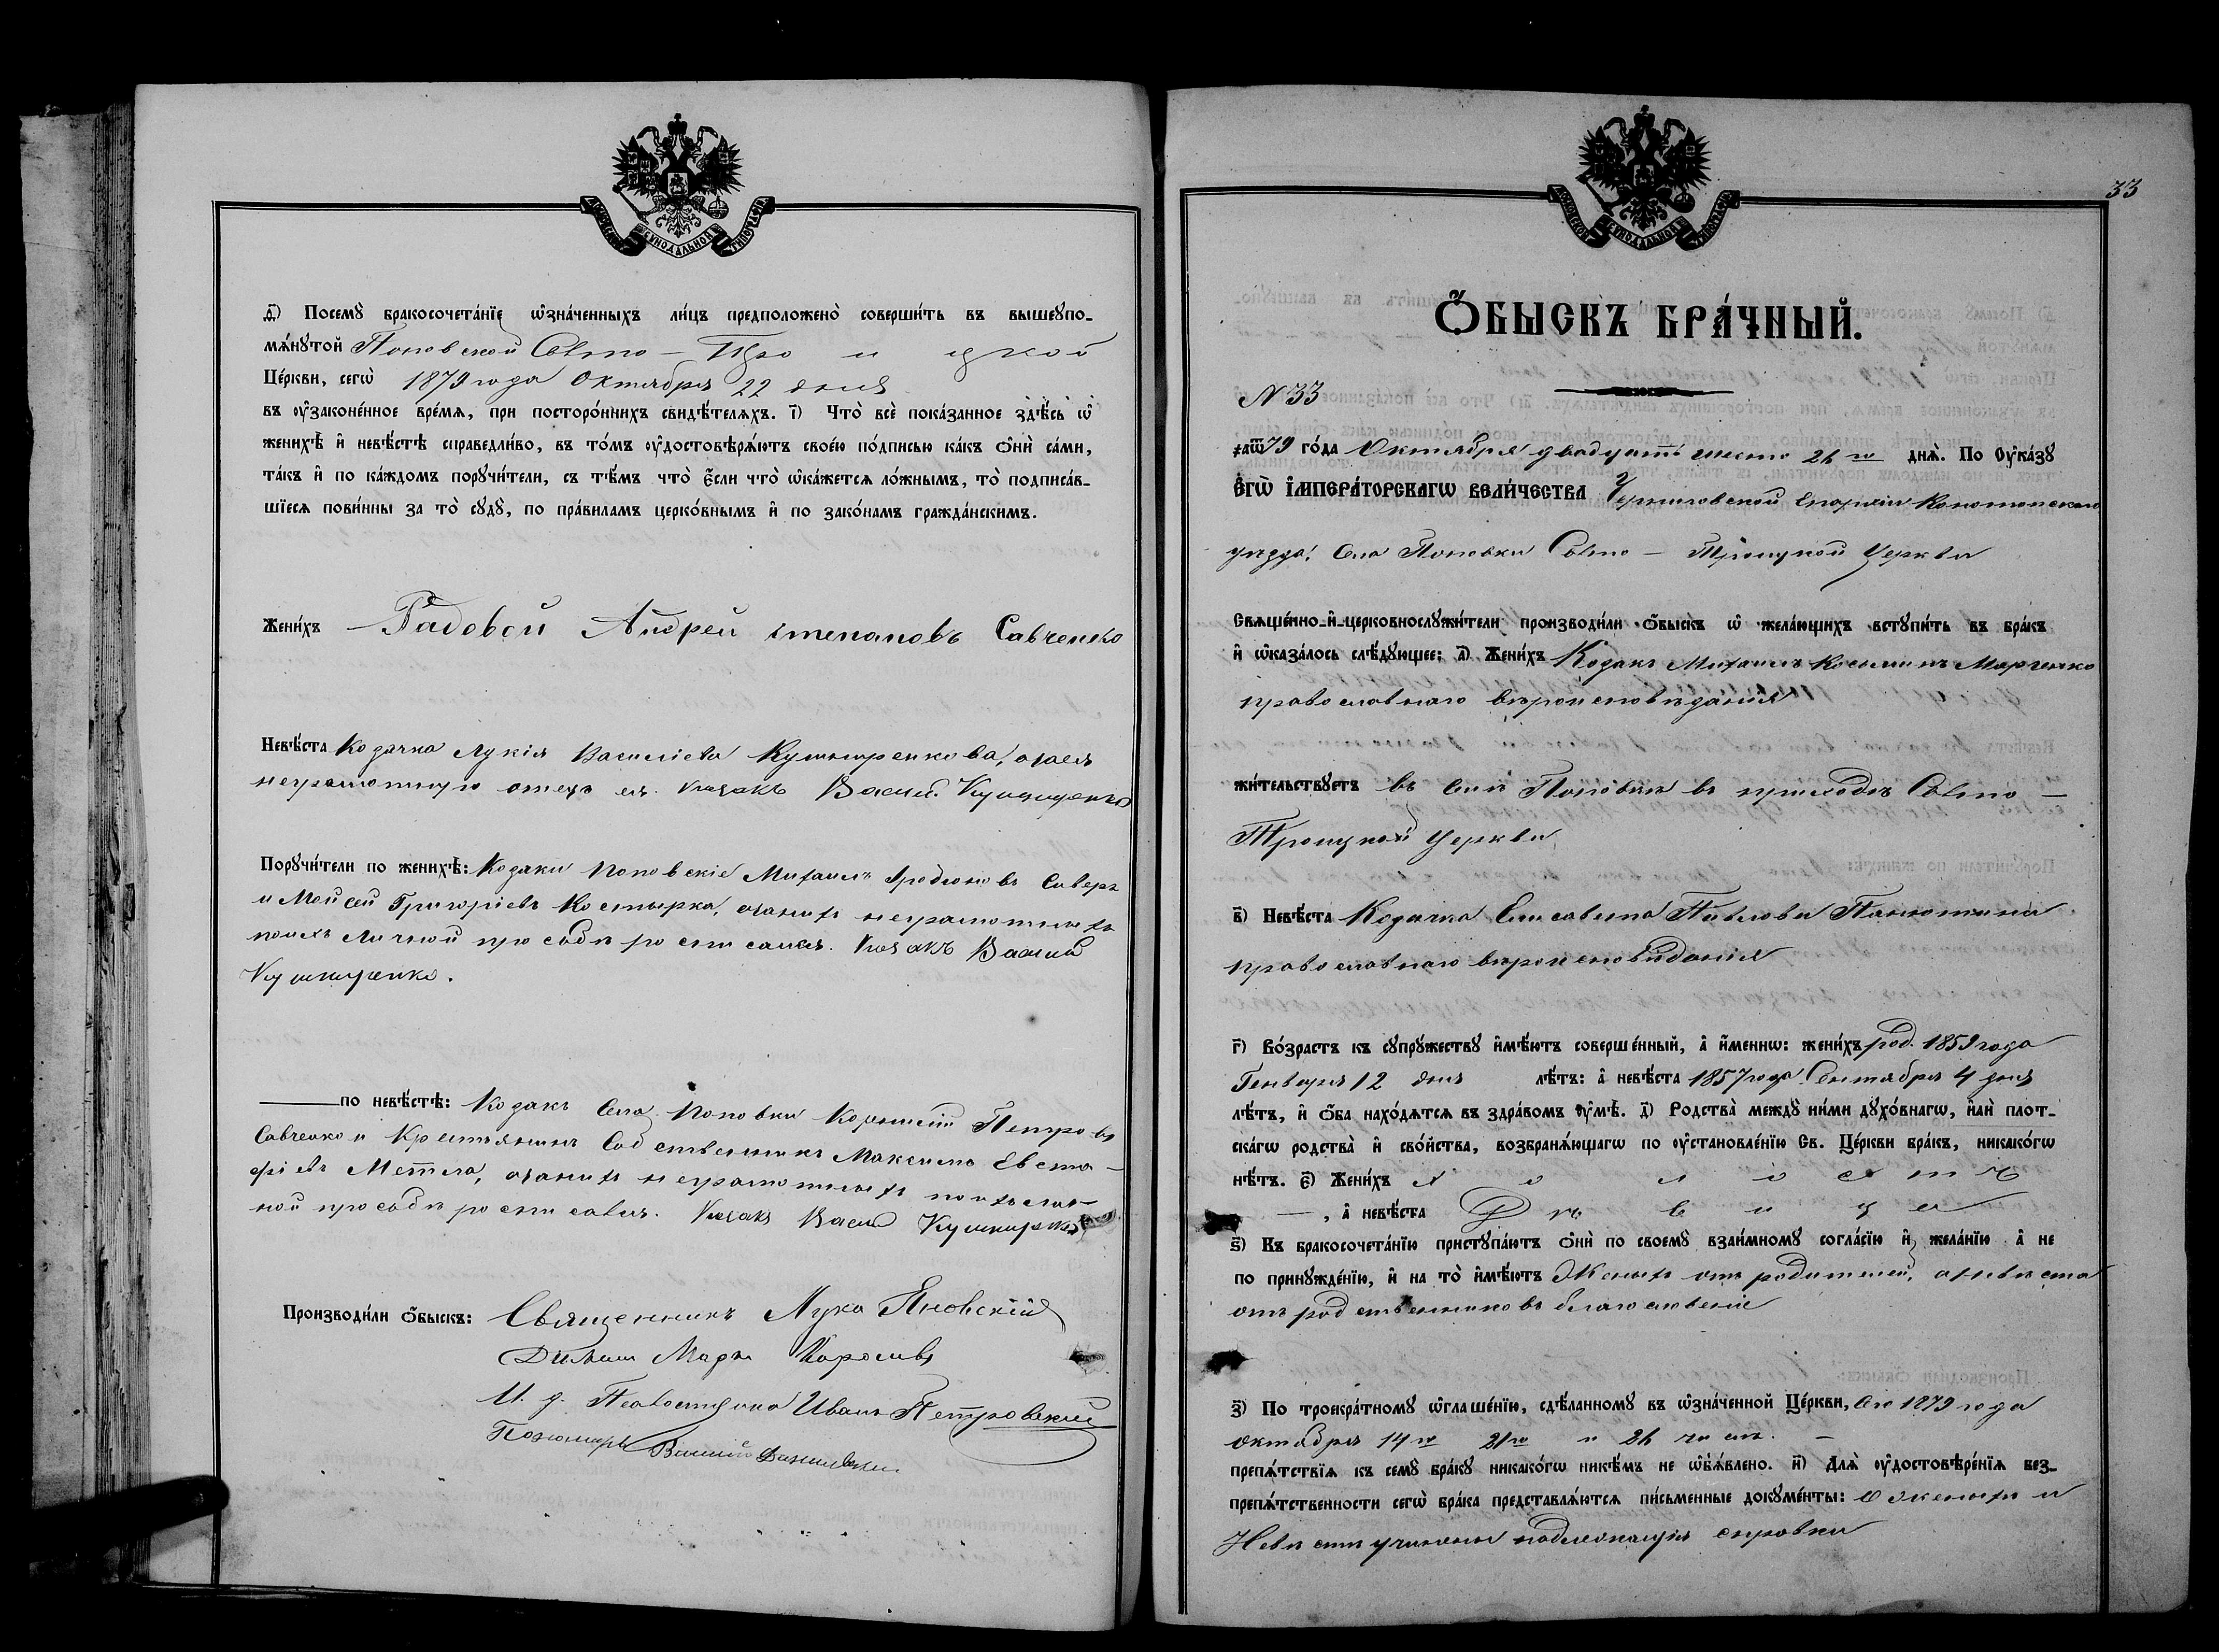 МОСКОВСКОЙ СѴНОДАЛЬНОЙ ТИПОГРАФІИ
ѳ҃) Посемꙋ̀ бракосочета́нїе ѡ҆зна́ченныхъ ли́цъ предположено̀ соверши́ть въ вышеꙋпо-
мѧ́нꙋтой Поповской Свято-Троицкой
Це́ркви, сегѡ̀ 1879 года Октября 22 дня
въ ᲂу҆законе́нное вре́мѧ, при посторо́ннихъ свидѣ́телѧхъ. і҃) Что̀ всѐ пока́занное здѣ́сь ѡ҆
женихѣ̀ и҆ невѣ́стѣ справедли́во, въ то́мъ ᲂу҆достовѣрѧ́ютъ свое́ю по́дписью ка́къ ѻ҆нѝ са́ми,
та́къ и҆ по ка́ждомъ порꙋчи́тели, съ тѣ́мъ что̀ є҆́сли что̀ ѡ҆ка́жетсѧ ло́жнымъ, то̀ подписа́в-
шїесѧ пови́нны за то̀ сꙋдꙋ̀, по пра́виламъ церко́внымъ и҆ по зако́намъ гражда́нскимъ.
Жени́хъ Рядовой Андрей Степановъ Савченко
Невѣ́ста Козачка Лукія Василіева Кушниренкова, а за ея
неграмотную отецъ ея козакъ Василій Кушниренко
Порꙋчи́тели по женихѣ̀: Козаки Поповскіе Михаилъ Сиверъ
и Мойсей Григоріевъ Костырка, а за нихъ неграмотныхъ
по ихъ личной просьбѣ росписался. Козакъ Василій
Кушниренко.
по невѣ́стѣ: Козакъ Села Поповки Корнилій Петровъ
Савченко и Крестьянинъ Собственникъ Максимъ Евста-
фіевъ Метла, а за нихъ неграмотныхъ по ихъ лич-
ной просьбѣ росписался. Козакъ Василій Кушниренко
Производи́ли ѻ҆́быскъ: Священникъ Лука Яновскій
Діаконъ Маркъ
И. д. Псаломщика Иванъ Петровскій
Пономарь Василій
33
МОСКОВСКОЙ СѴНОДАЛЬНОЙ ТИПОГРАФІИ
Ѻ҆́БЫСКЪ БРА́ЧНЫЙ.
N 33
҂аѿ79 го́да Октября двадцать шесто 26го днѧ̀. По Оу҆ка́зꙋ
Є҆ГѠ̀ И҆МПЕРА́ТОРСКАГѠ ВЕЛИ́ЧЕСТВА Черниговской Епархіи Конотопскаго
уѣзда, Села Поповки Свято-Троицкой Церкви
Свѧще́нно-и҆-церковнослꙋжи́тели производи́ли ѻ҆́быскъ ѡ҆ жела́ющихъ встꙋпи́ть въ бра́къ
и҆ ѡ҆каза́лось слѣ́дꙋющее: а҃) Жени́хъ Козакъ Михаилъ Косьминъ Марченко
православнаго вѣроисповѣданія
жи́тельствꙋетъ въ Селѣ Поповкѣ въ приходѣ Свято-
Троицкой Церкви
в҃) Невѣ́ста Козачка Елисавета Павлова Панютина
православнаго вѣроисповѣданія
г҃) Во́зрастъ къ сꙋпрꙋ́жествꙋ и҆мѣ́ютъ соверше́нный, а҆ и҆́меннѡ: жени́хъ род. 1859 года
Генваря 12 дня лѣ́тъ: а҆ невѣ́ста 1857 года Сентября 4 дня
лѣ́тъ, и҆ ѻ҆́ба нахо́дѧтсѧ въ здра́вомъ ᲂу҆мѣ̀. д҃) Родства̀ междꙋ̀ ни́ми дꙋхо́внагѡ, и҆лѝ плот-
ска́гѡ родства̀ и҆ сво́йства, возбранѧ́ющагѡ по ᲂу҆становле́нїю Св. Це́ркви бра́къ, никако́гѡ
нѣ́тъ. є҃) Жени́хъ холостъ
—, а҆ невѣ́ста Дѣвица
ѕ҃) Къ бракосочета́нїю пристꙋпа́ютъ ѻ҆нѝ по своемꙋ̀ взаи́мномꙋ согла́сїю и҆ жела́нїю а҆ не
по принꙋжде́нїю, и҆ на то̀ и҆мѣ́ютъ Женихъ отъ родителей, а невѣста
отъ родственниковъ благословеніе
з҃) По троекра́тномꙋ ѡ҆глаше́нїю, сдѣ́ланномꙋ въ ѡ҆зна́ченной Це́ркви, Сего 1879 года
октября 14го 21го и 26 числъ. —
препѧ́тствїѧ къ семꙋ̀ бра́кꙋ никако́гѡ никѣ́мъ не ѡ҆б̾ѧ́влено. и҃) Длѧ̀ ᲂу҆достовѣре́нїѧ без-
препѧ́тственности сегѡ̀ бра́ка представлѧ́ютсѧ пи́сьменные докꙋме́нты: О женихѣ и
Невѣстѣ учинены надлежащія справки